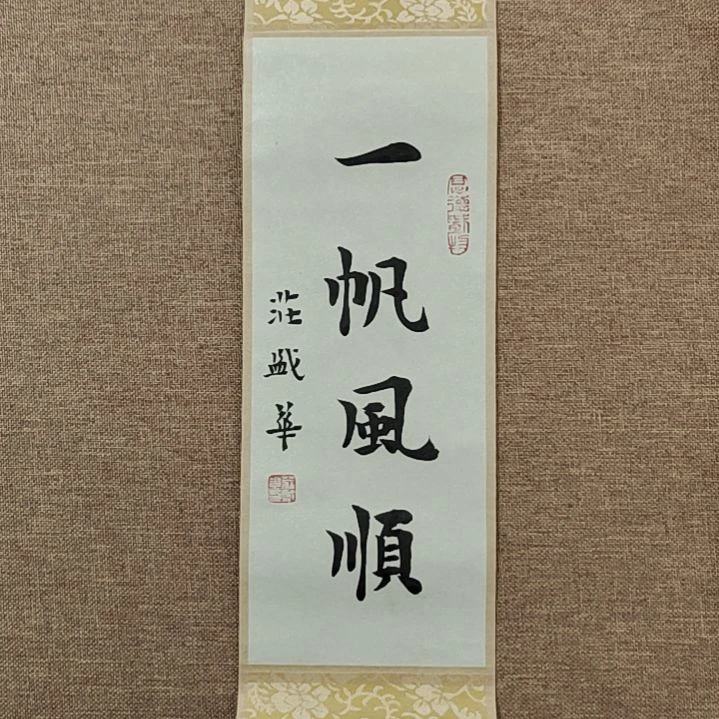 一帆風順
莊盛華